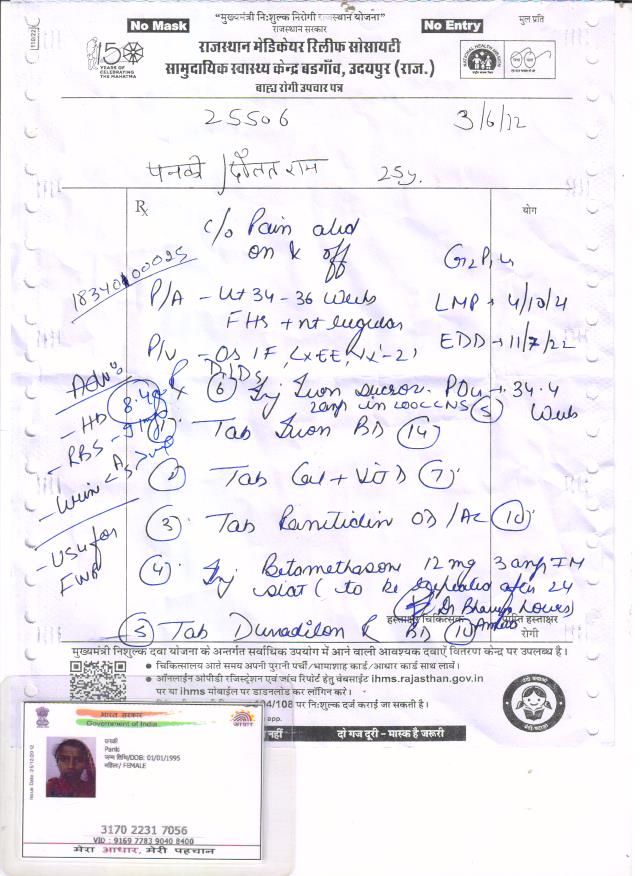 110/22
No Mask
"मुख्यमंत्री नि:शुल्क निरोगी राजस्थान योजना"
No Entry
मुल प्रति
राजस्थान सरकार
राजस्थान मेडिकेयर रिलीफ सोसायटी
150
YEARS OF
CELEBRATING
THE MAHATMA
सामुदायिक स्वास्थ्य केन्द्र बडगाँव, उदयपुर (राज.)
NATIONAL HEALTH MISSION
बाह्य रोगी उपचार पत्र
25506
3/6/22
पनकी / दौलत राम 25y.
Rx
योग
C/o Pain abd
on & off
18340100025
P/A - Ut 34-36 Weeks
LMP → 4/10/21
FHS + nt
EDD → 11/7/22
P/V - OS 1F,
Adv:
- HB 8.4g
- RBS
- Urine
- USG for
FWB
⑥ Inj Iron sucrose
2amp in 200CCNS ⑤
POG → 34.4
Weeks
① Tab Iron BD ⑭
② Tab Cal + Vit D ⑦
③ Tab Ranitidin OD /AC ⑩
④ Inj Betamethasone 12 mg 3 amp IM
stat ( to be repeated after 24
hours)
हस्ताक्षर चिकित्सक
हस्ताक्षर
रोगी
⑤ Tab Duvadilon R BD ⑩
मुख्यमंत्री निशुल्क दवा योजना के अन्तर्गत सर्वाधिक उपयोग में आने वाली आवश्यक दवाऐं वितरण केन्द्र पर उपलब्ध है।
● चिकित्सालय आते समय अपनी पुरानी पर्ची/भामाशाह कार्ड/आधार कार्ड साथ लावें।
● ऑनलाईन ओपीडी रजिस्ट्रेशन एवं जांच रिपोर्ट हेतु वेबसाईट ihms.rajasthan.gov.in
पर या ihms मोबाईल पर डाउनलोड कर लॉगिन करे।
04/108 पर नि:शुल्क दर्ज कराई जा सकती है।
app.
नहीं
दो गज दूरी - मास्क है जरूरी
भारत सरकार
Government of India
आधार
Issue Date: 25/12/2012
पनकी
Panki
जन्म तिथि/DOB: 01/01/1995
महिला/ FEMALE
3170 2231 7056
VID : 9169 7783 9040 8400
मेरा आधार, मेरी पहचान